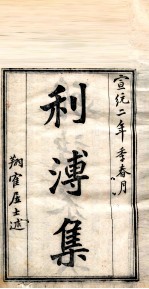 宣統二年季春月
利溥集
翔霍居士述